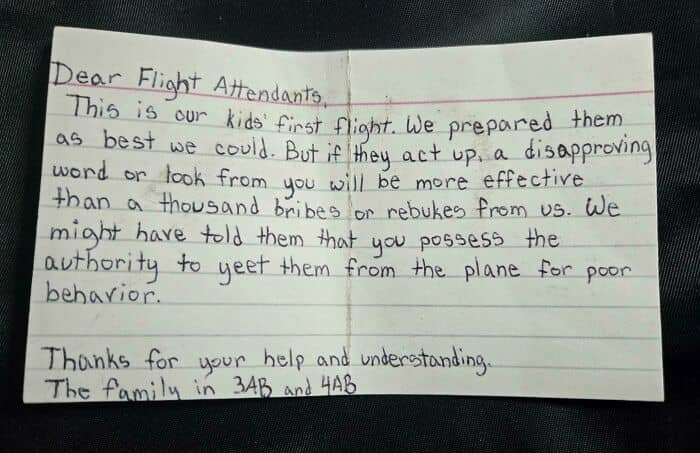 Dear Flight Attendants,
This is our kids' first flight. We prepared them
as best we could. But if they act up, a disapproving
word or look from you will be more effective
than a thousand bribes or rebukes from us. We
might have told them that you possess the
authority to yeet them from the plane for poor
behavior.
Thanks for your help and understanding.
The family in 3AB and 4AB